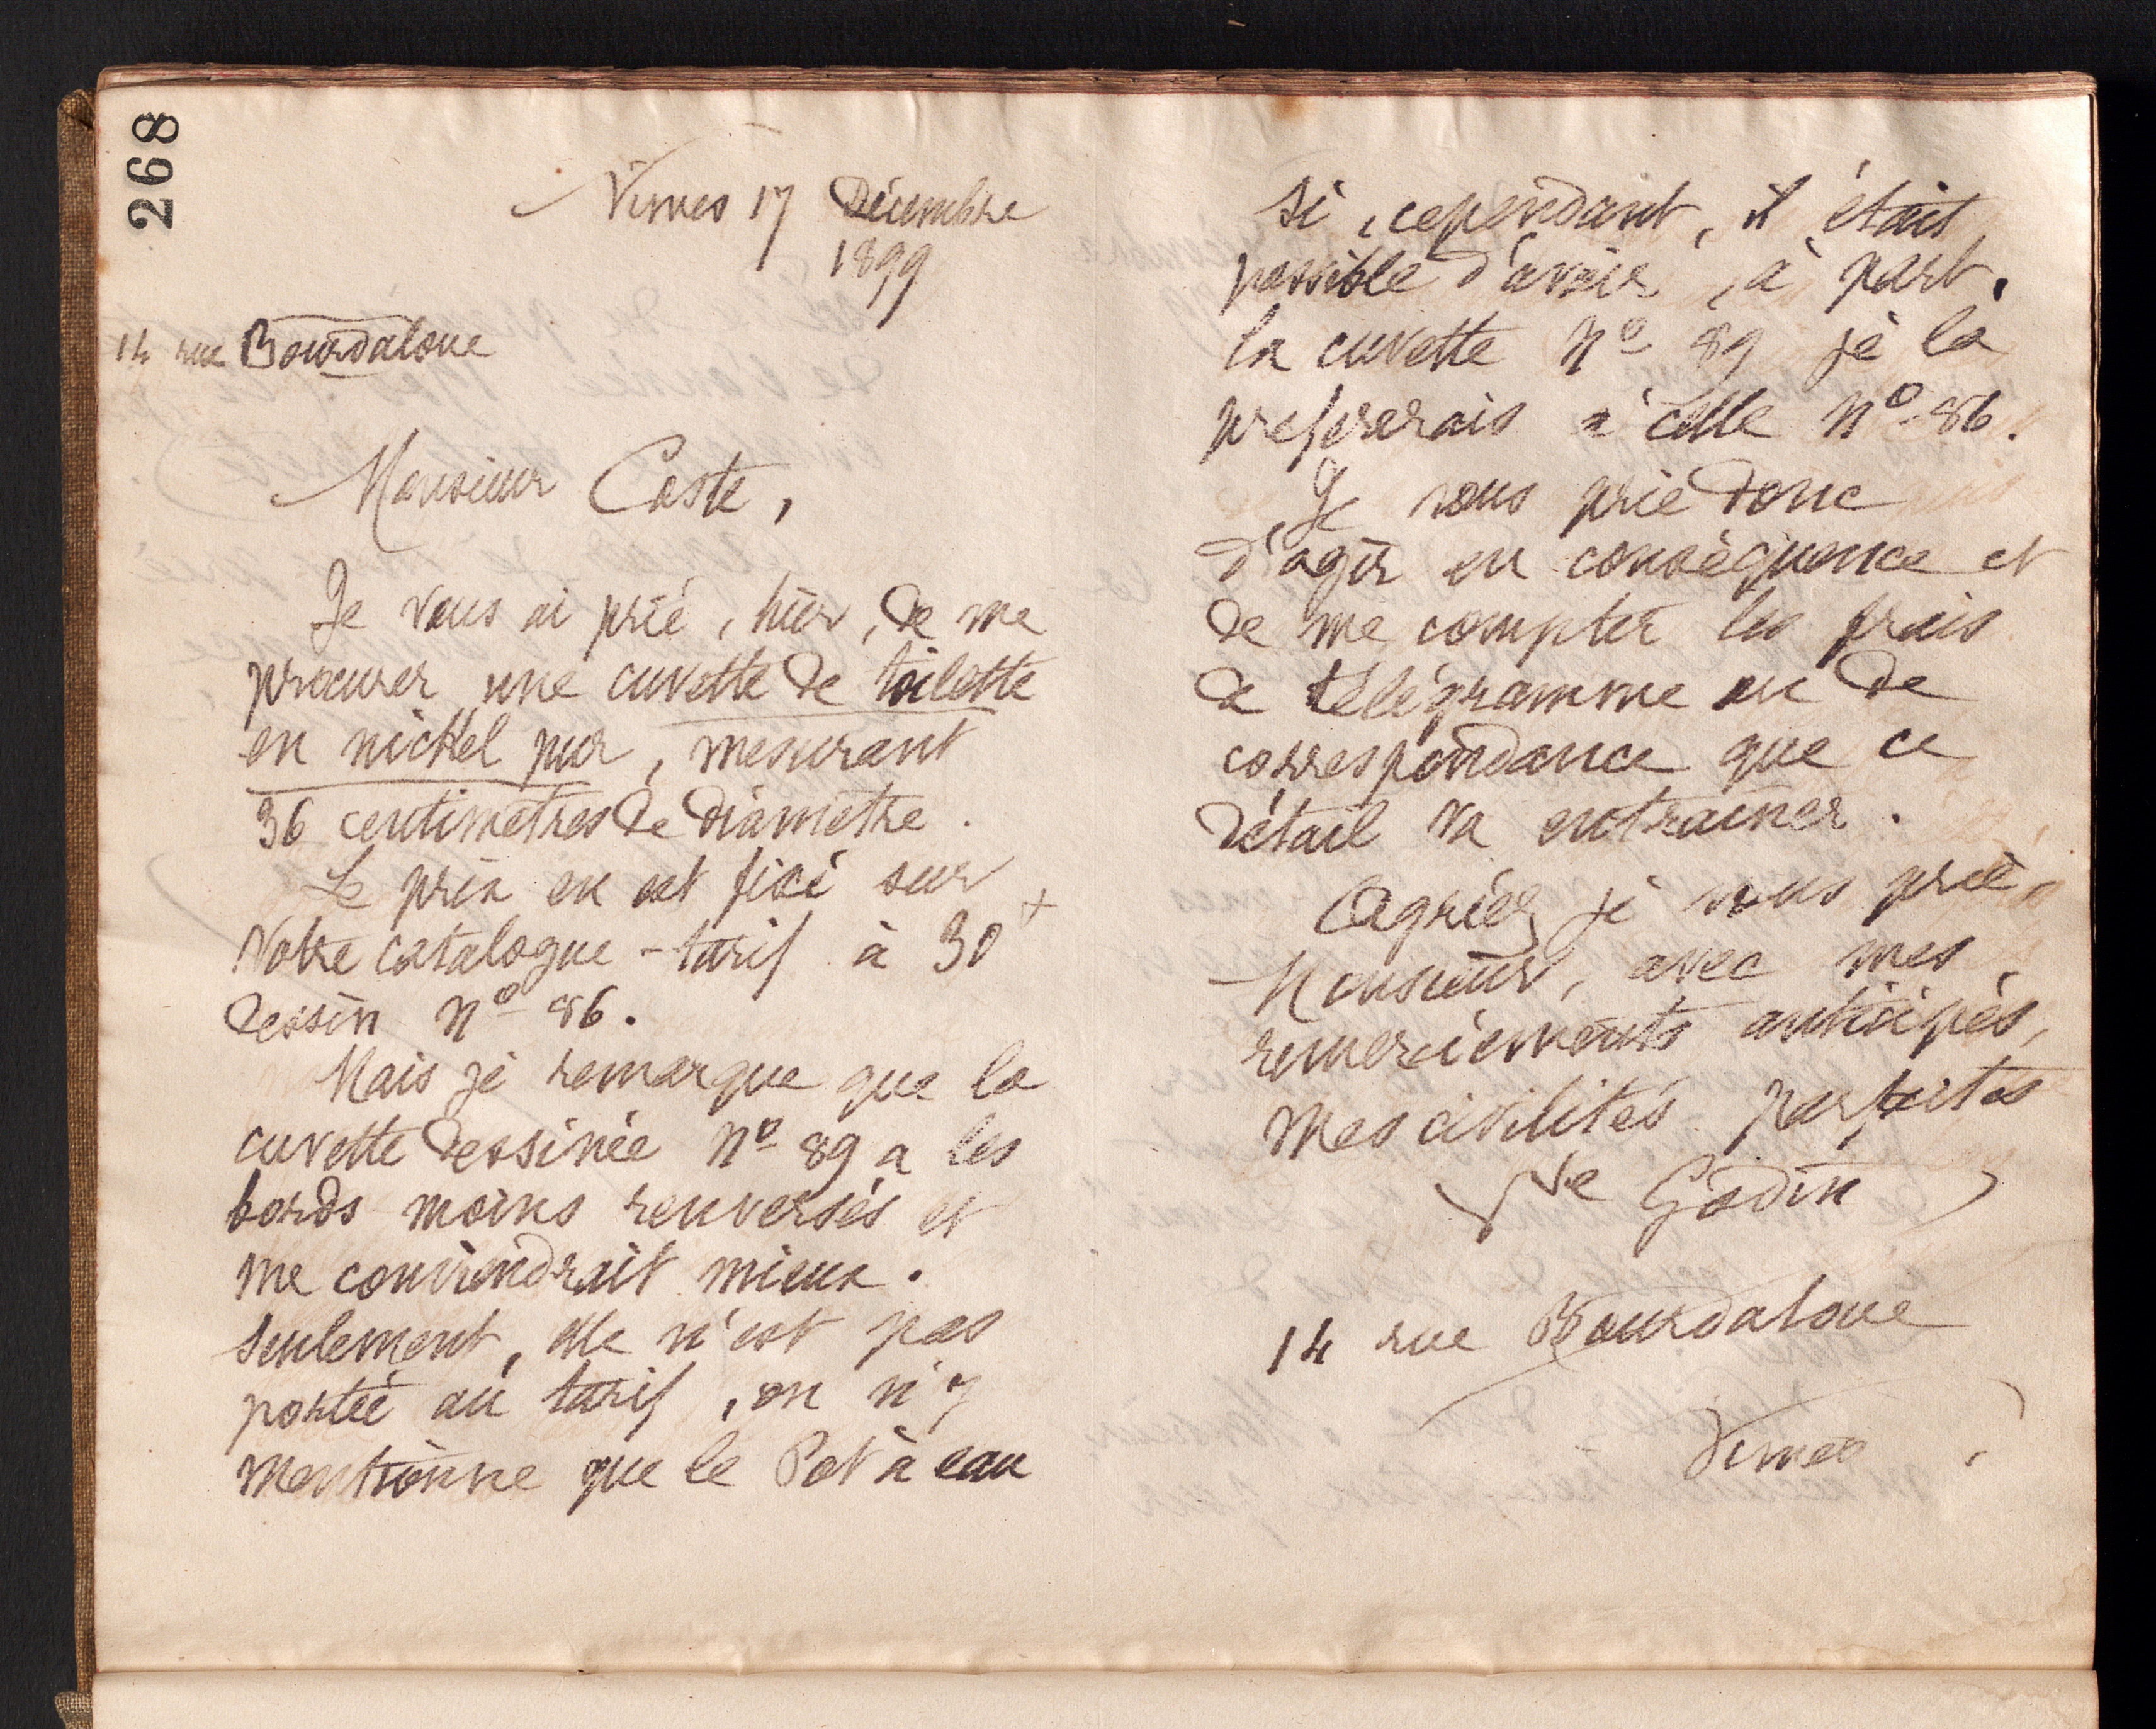 268
Nîmes 17 Décembre
1899
14 rue Bourdaloue
Monsieur Coste,
Je vous ai prié, hier, de me
procurer une cuvette de toilette
en nickel pur, mesurant
36 centimètres de diamètre.
Le prix en est fixé sur
Votre catalogue-tarif à 30 f
dessin No 86.
Mais je remarque que la
cuvette dessinée No 89 a les
bords moins renversés et
me conviendrait mieux.
Seulement, elle n'est pas
portée au tarif, on n'y
mentionne que le Pot à eau
Si, cependant, il était
possible d'avoir, à part,
la cuvette No 89 je la
préfèrerais à celle No 86.
Je vous prie donc
d'agir en conséquence et
de me compter les frais
de télégramme ou de
correspondance que ce
détail va entraîner.
Agréez je vous prie,
Monsieur, avec mes
remerciements anticipés,
mes civilités parfaites
Vve Godin
14 rue Bourdaloue
Nîmes